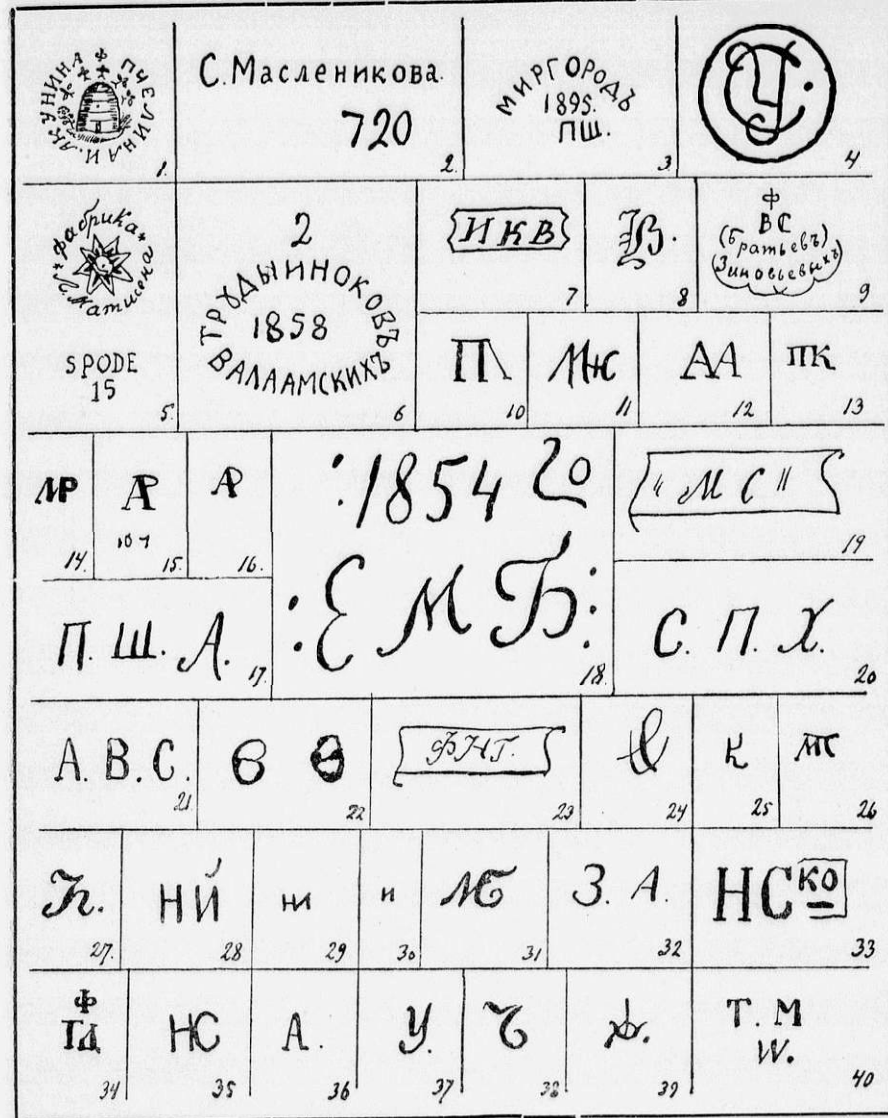 ПЧЕЛИНА И ЯКУНИНА
1.
С. Масленикова.
720
2.
МИРГОРОДЪ
1895.
ПШ.
3.
4
* Фабрика *
Матисена
SPODE
15
5.
2
ТРУДЫ ИНОКОВЪ
1858
ВАЛААМСКИХЪ
6
ИКВ
7
В.
8
Ф
ВС
(Братьевъ)
Зиновьевыхъ
9
П
10
МЖ
11
АА
12
ПК
13
МР
14.
АР
15.
АР
16.
:1854 го
:Е М Б:
18.
"М С"
19
П. Ш. А.
17.
С. П. Х.
20
А. В. С.
21.
Ѳ Ѳ
22
ФНГ.
23
24
К
25
26
27.
НЙ
28
НИ
29
и
30
31
З. А.
32
НС КО
33
Ф
ГД
34
НС
35
А.
36
У.
37
Ъ
38
39
Т. М
W.
40